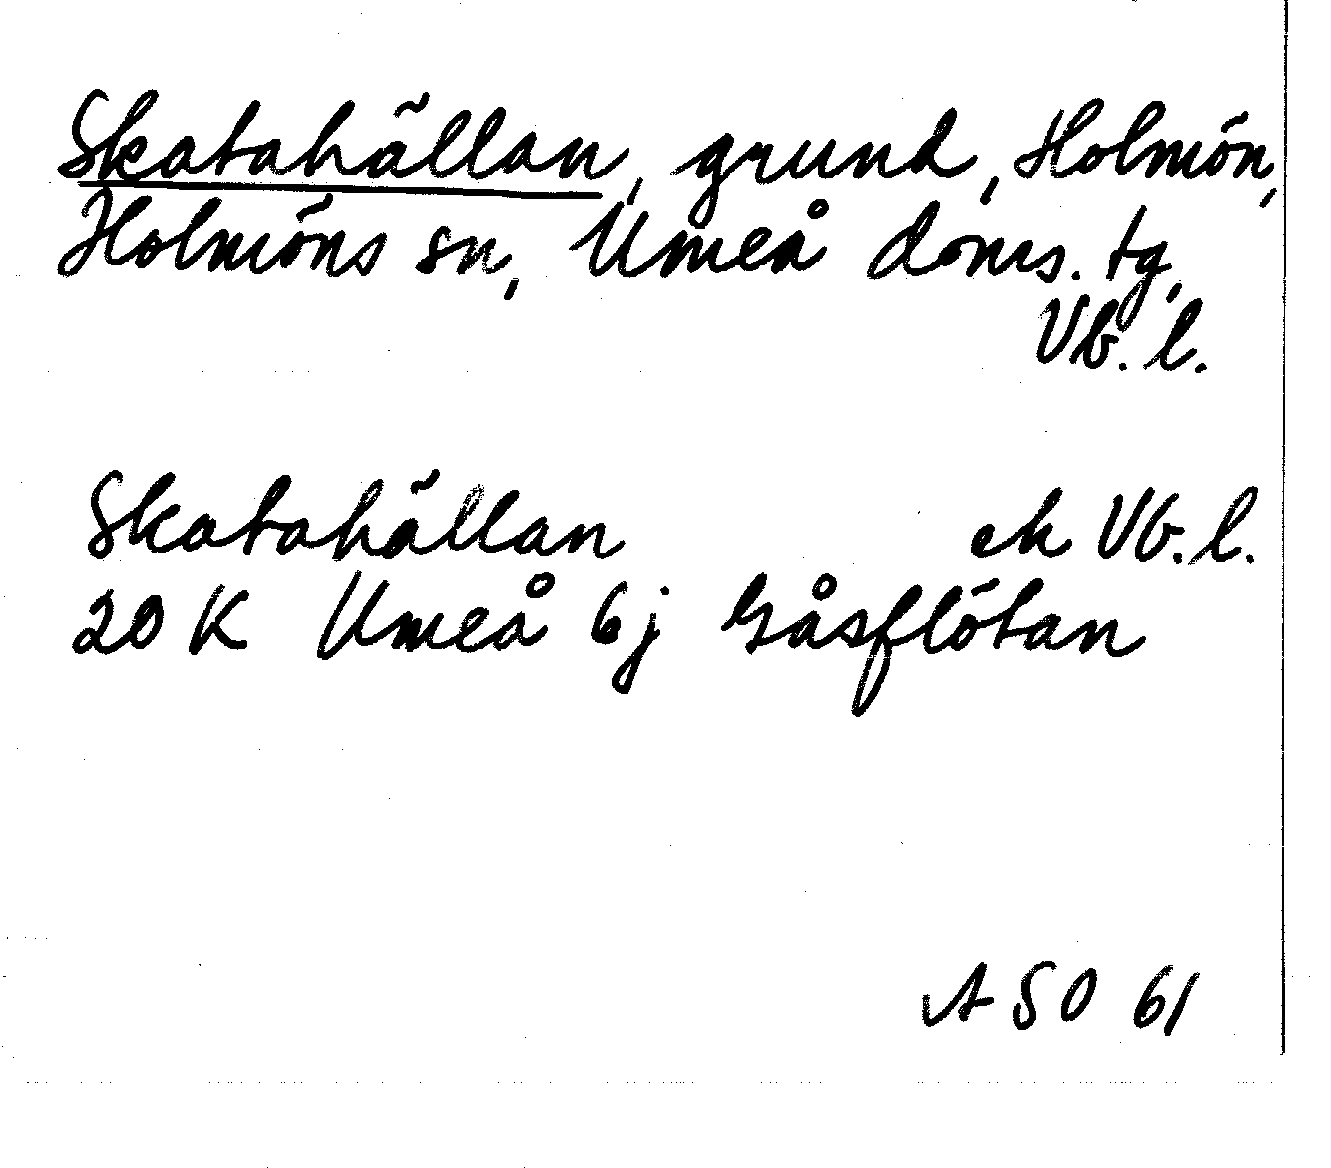 Skatahällan, grund, Holmön,
Holmöns sn, Umeå doms. tg,
Vb. l.
Skatahällan ek Vb. l.
20 K Umeå 6j Gåsflötan
A S O 61